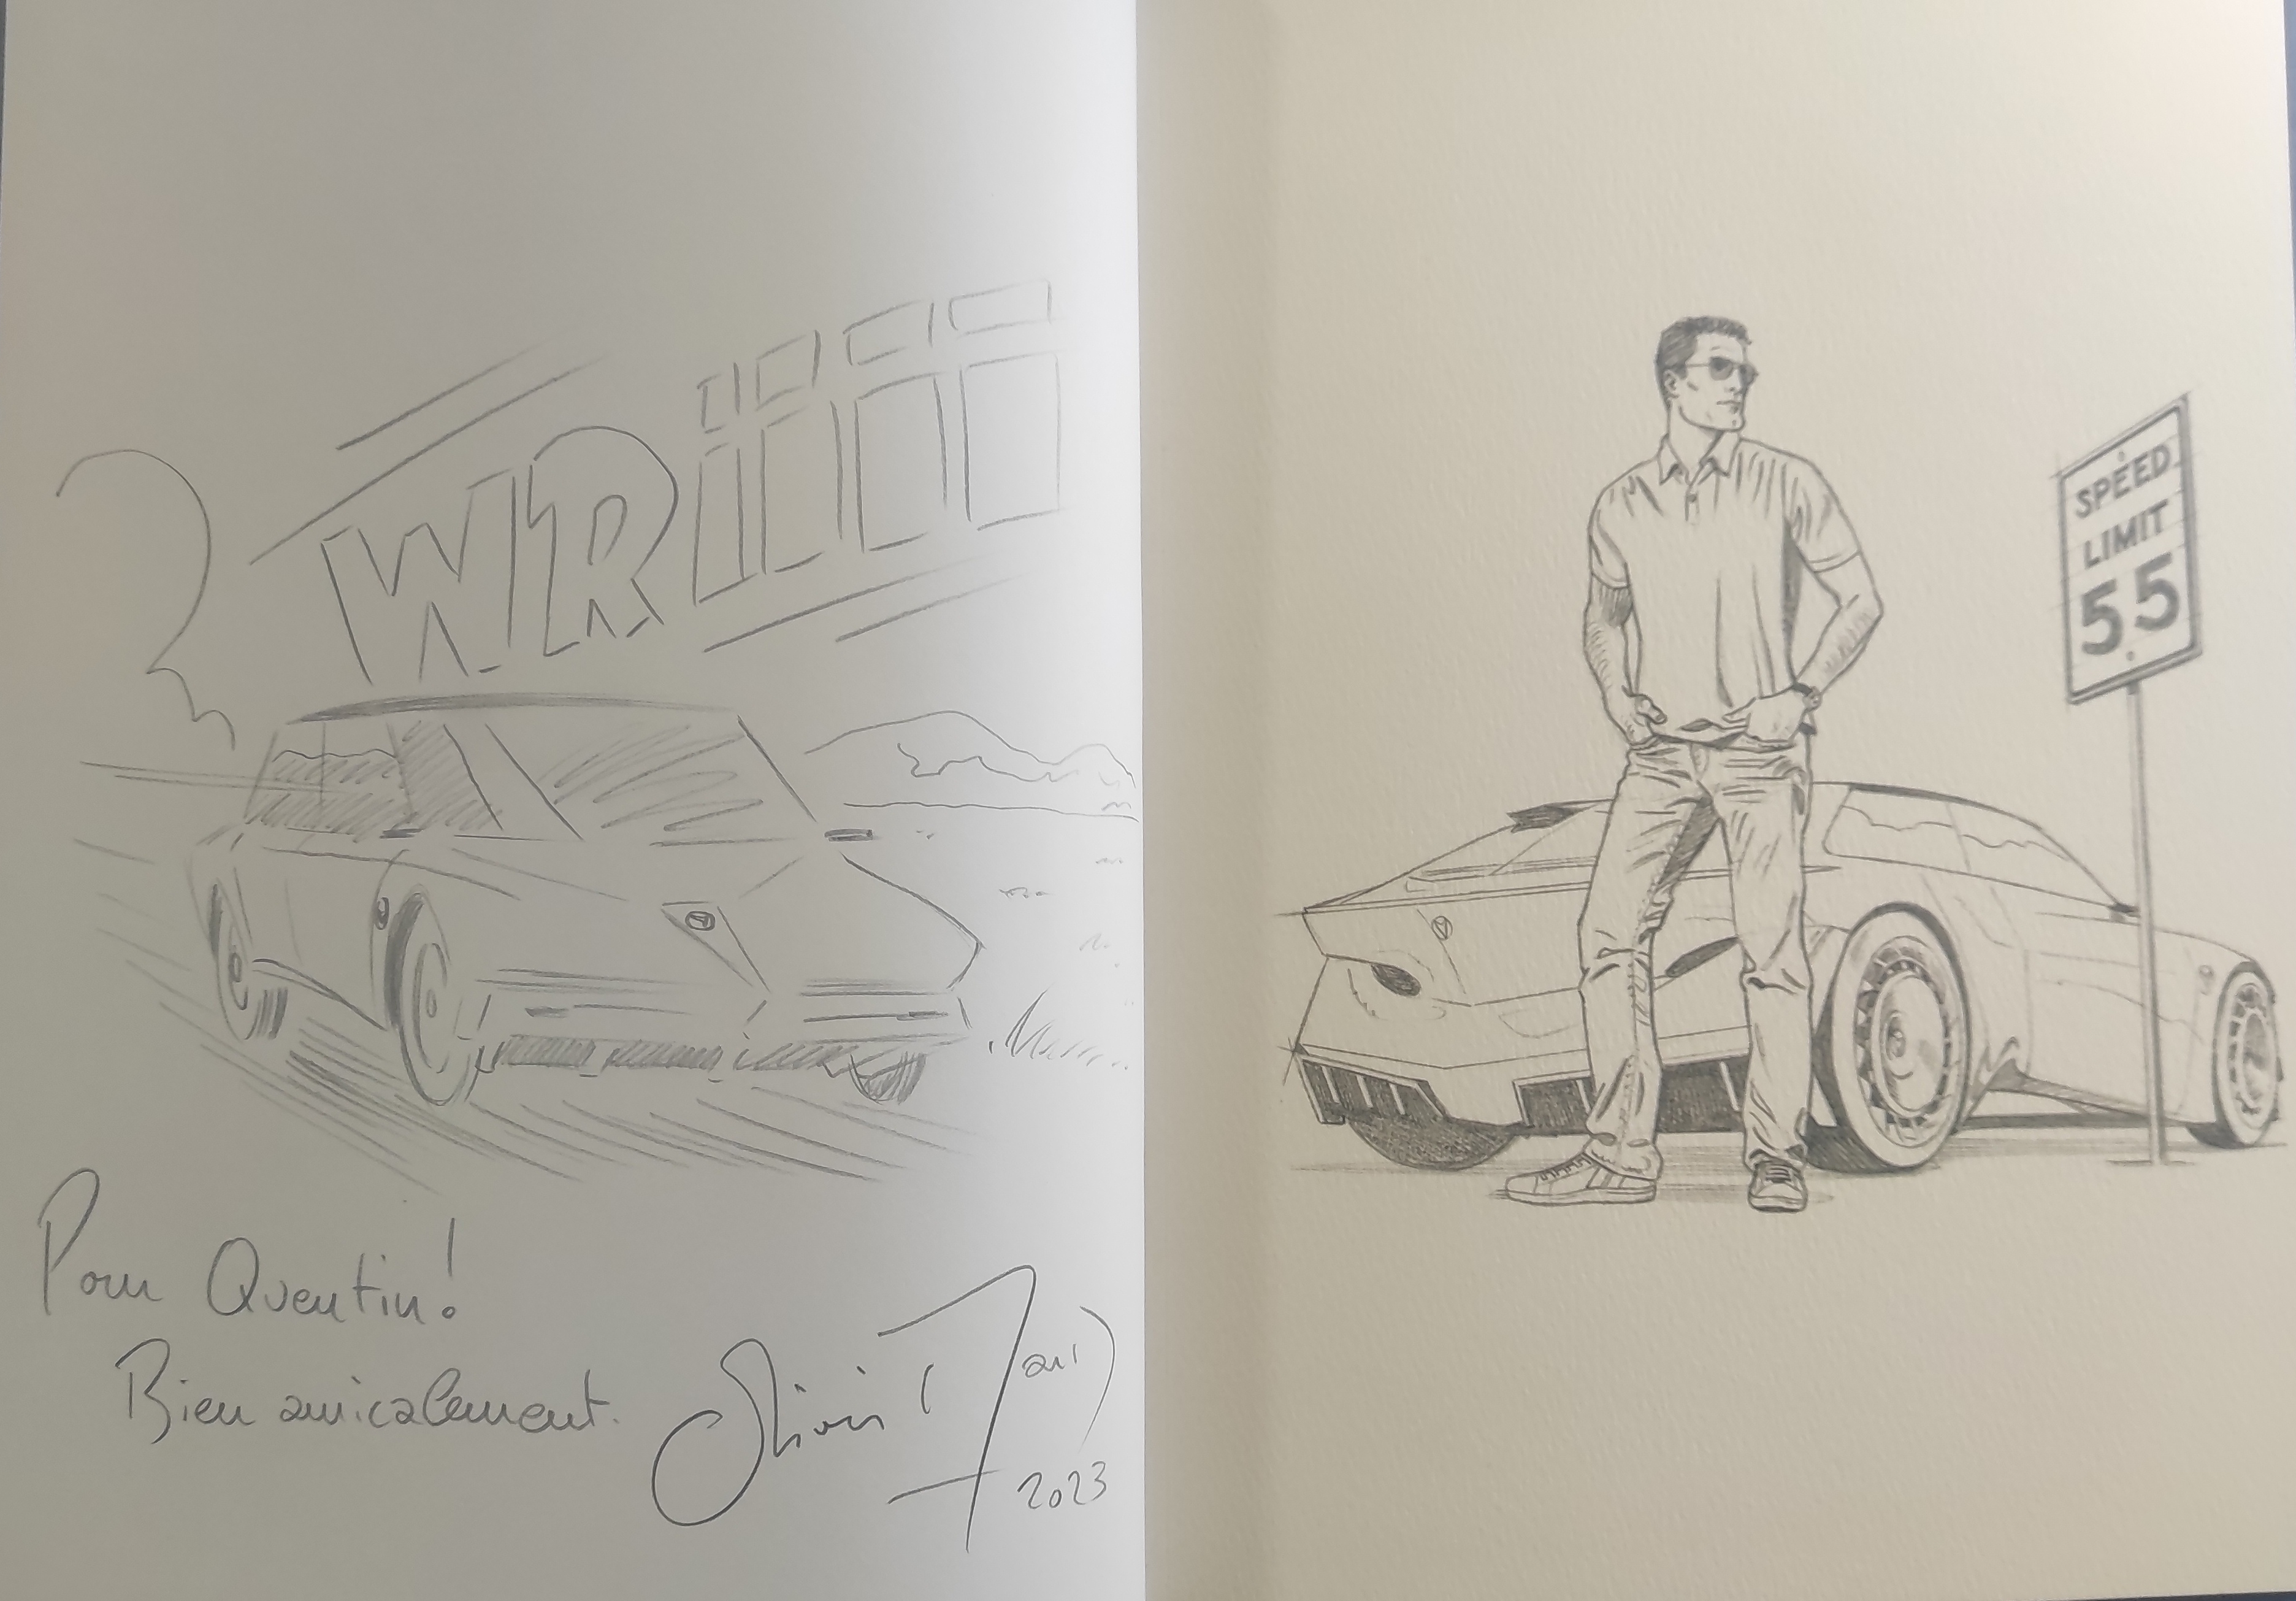 WRIIII
Pour Quentin!
Bien amicalement.
2023
SPEED
LIMIT
55